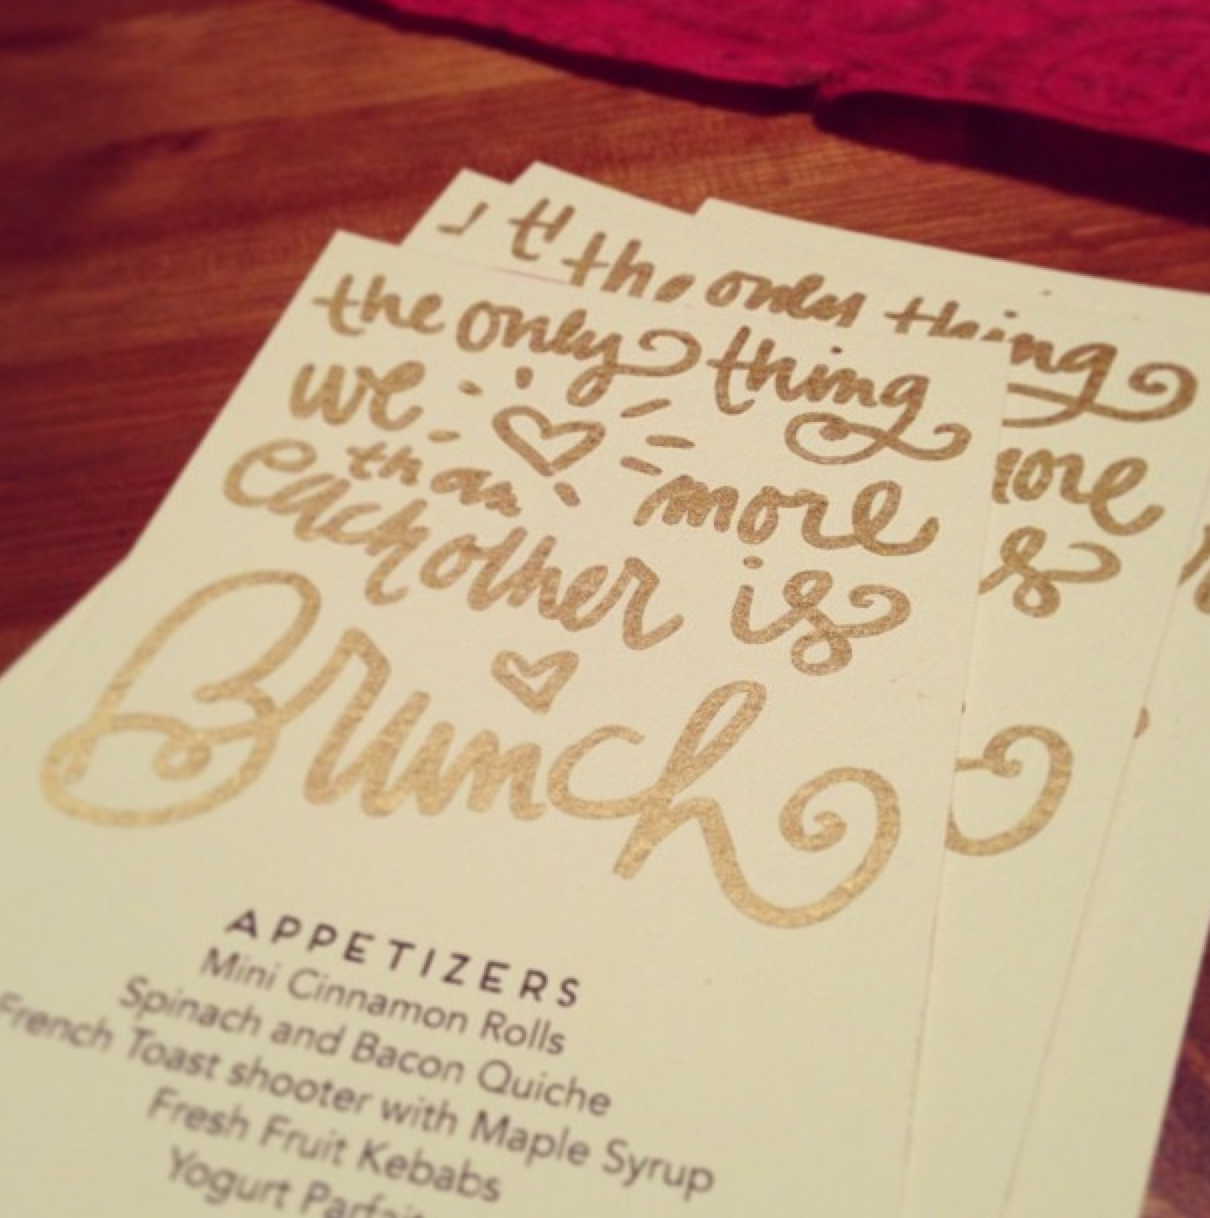 the only thing
we more
than
each other is
Brunch
APPETIZERS
Mini Cinnamon Rolls
Spinach and Bacon Quiche
French Toast shooter with Maple Syrup
Fresh Fruit Kebabs
Yogurt
the only thing